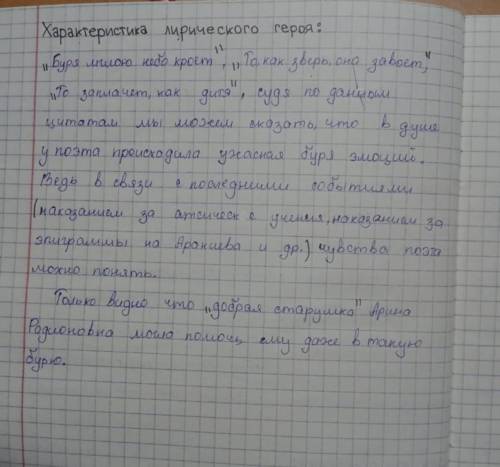 Характеристика лирического героя:
„Буря мглою небо кроет", „То, как зверь, она завоет,"
„То заплачет, как дитя", судя по данным
цитатам мы можем сказать, что в душе
у поэта происходила ужасная буря эмоций.
Ведь в связи с последними событиями
(наказанием за атеическ е учения, наказанием за
эпиграммы на Аракчева и др.) чувства поэта
можно понять.
Только видно что „добрая старушка" Арина
Родионовна могла помочь ему даже в такую
бурю.